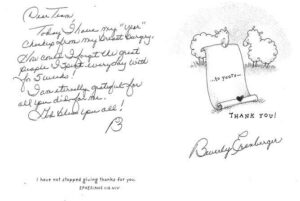 Dear Team
Today I have my "year"
checkup from my breast surgery.
How could I forget the great
people I spent everyday with
for 5 weeks!
I am eternally grateful for
all you did for me.
God bless you all!
B
I have not stopped giving thanks for you.
EPHESIANS 1:16 NIV
...SO YOU'RE...
THANK YOU!
Beverly